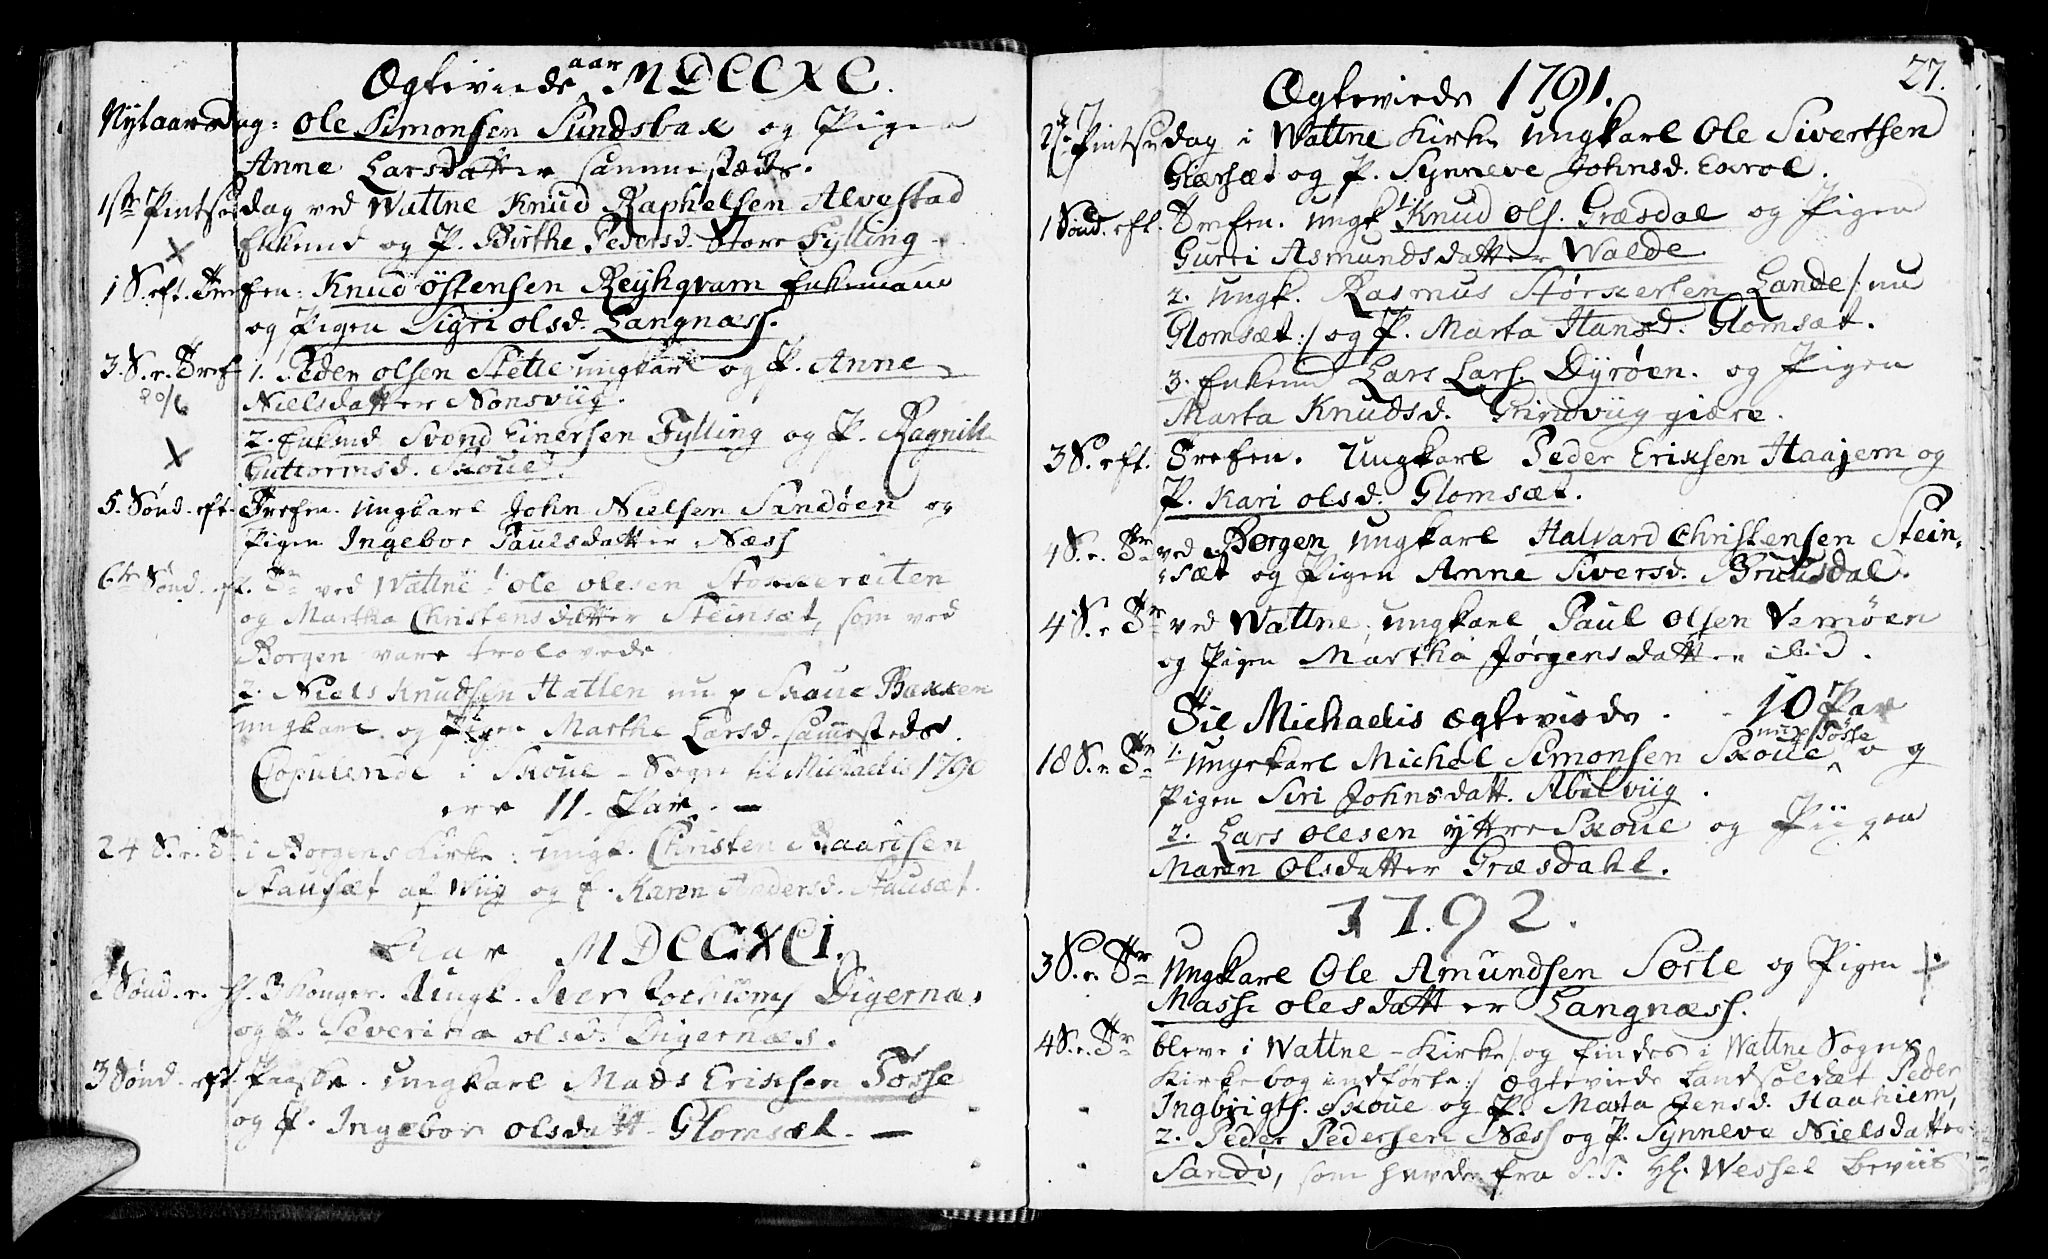 Ægteviede aar MDCCXC.
Nytaarsdag: Ole Simonsen Sundsbak og Pigen
Anne Larsdatter sammestæds.
1ste Pintsedag ved Wattne Knud Raphelsen Alvestad
Enkemd og P. Birthe Pedersd. Store Fylling
1 S. eft. Trefen: Knud Østensen Røykqvam Enkemann
og Pigen Sigri Olsd. Langnæss.
3. S. e. Tref 1. Peder Olsen Stette ungkarl og P. Anne
20/6
Nielsdatter Nonsviig.
2. Enkemd Svend Einersen Fylling og P. Ragnill
Guttormsd. Skoue.
5. Sønd. eft. Trefen. Ungkarl John Nielsen Sandøen og
Pigen Ingebor Paulsdatter Næss
6te Sønd. eft. Tr ved Wattne 1. Ole Olesen reiten
og Martha Christensdatter Steinsæt, som ved
Borgen vare trolovede
2. Niels Knudsen Hatlen nu p Skoue Bakken
ungkarl og Pigen Marthe Larsd. sammesteds.
Copulerede i Skoue-Sogn til Michaelis 1790
ere 11. Par. —
24 S. e. Tr i Borgens Kirke: ungk. Christen
Stausæt af Wiig og P. Karen Andersd. Stausæt.
Aar MDCCXCI.
Sønd. e. H. 3 Konger. Ungk. Iver Digernæs
og P. Severina Olsd. Digernæs.
3 Sønd. eft. Paaske. ungkarl Mads Erixsen Tøsse
og P. Ingebor Olsdatt. Glomsæt. —
27.
Ægteviede 1791.
2. Pintsedag i Wattne Kirke Ungkarl Ole Sivertsen
Giærsæt og P. Synneve Johnsd. Exrol.
1 Sønd. eft. Trefen. ungk. 1. Knud Ols. Græsdal og Pigen
Gurri Asmundsdatter Walde
2. ungk. Rasmus Størkersen Lande /: nu
Glomsæt :/ og P. Marta Hansd. Glomsæt.
3. Enkemd Lars Lars. Dyrøen. og Pigen
Marta Knudsd. Grindviig giære.
3 S. eft. Trefen. Ungkarl Peder Erixsen Haajem og
P. Kari Olsd. Glomsæt.
4 S. e. Tr ved Borgen ungkarl Halvard Christensen Stein-
sæt og Pigen Anne Siversd. Bruusdal.
4 S. e. Tr ved Wattne, ungkarl Paul Olsen Vemøen
og Pigen Martha Jørgensdatter ibid.
Til Michaelis Ægteviede. - 10 Par
18 S. e. Tr 1. Ungekarl Michel Simonsen Skoue nu Tøsse og
Pigen Siri Johnsdatt. Abelviig.
2. Lars Olesen yttre Skoue og Piigen
Maren Olsdatter Græsdahl.
1792.
3 S. e. Tr Ungkarl Ole Amundsen Sorte og Pigen
Massi Olesdatter Langnæss.
4 S. e. Tr bleve i Wattne-Kirke /: og findes i Wattne Sogns
Kirkebog indførte :/ Ægteviede Landsoldat Peder
Ingbrigts. Skoue og P. Marta Jensd. Haahiem,
2. Peder Pedersen Næss og P. Synneve Nielsdatter
Sandø, som havde fra S. T. Hr. Wessel Beviis